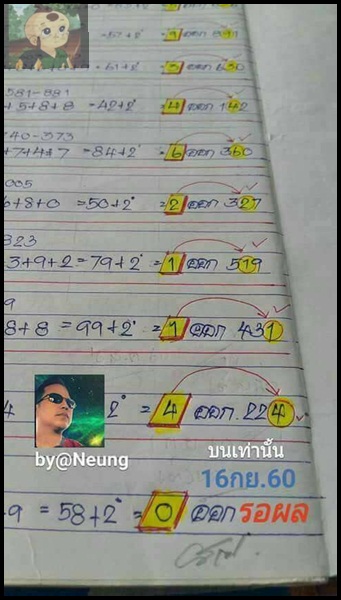 =57+2° = 9 ออก 891
=61+2° = 3 ออก 630
581-881
+5+8+8 =42+2° =4 ออก 142
740-373
+7+4+7 =84+2° =6 ออก 360
005
6+8+0 =50+2° =2 ออก 327
323
3+9+2=79+2° =1 ออก 519
9
8+8 =99+2° =1 ออก 431
4 2° = 4 ออก 224
by@Neung
บนเท่านั้น
16กย.60
9 = 58+2° = 0 ออก รอผล